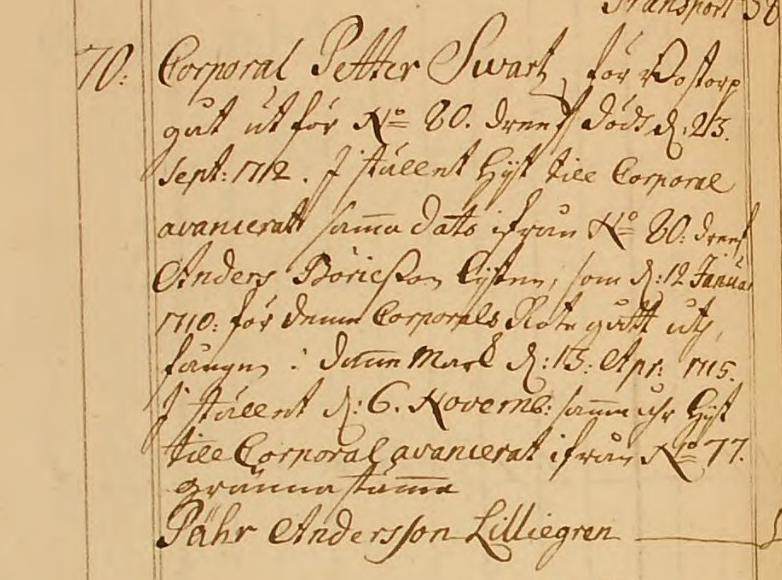 Transport 58
70: Corporal Petter Swart, för Rostorp
gåt ut för No 80. dreef döds d: 23.
Sept: 1712. I stället hijt till Corporal
avancerat samma dato ifrån No 80: dreef
Anders Börießon, som d: 12 Januar
1710: för denna Corporals Rote gått ut,
fången i Dannemark d: 13: Apr: 1715.
I stället d: 6. Novemb: samma åhr hijt
till Corporal avancerat ifrån No 77.
gränna
Pähr Andersson Lilliegren